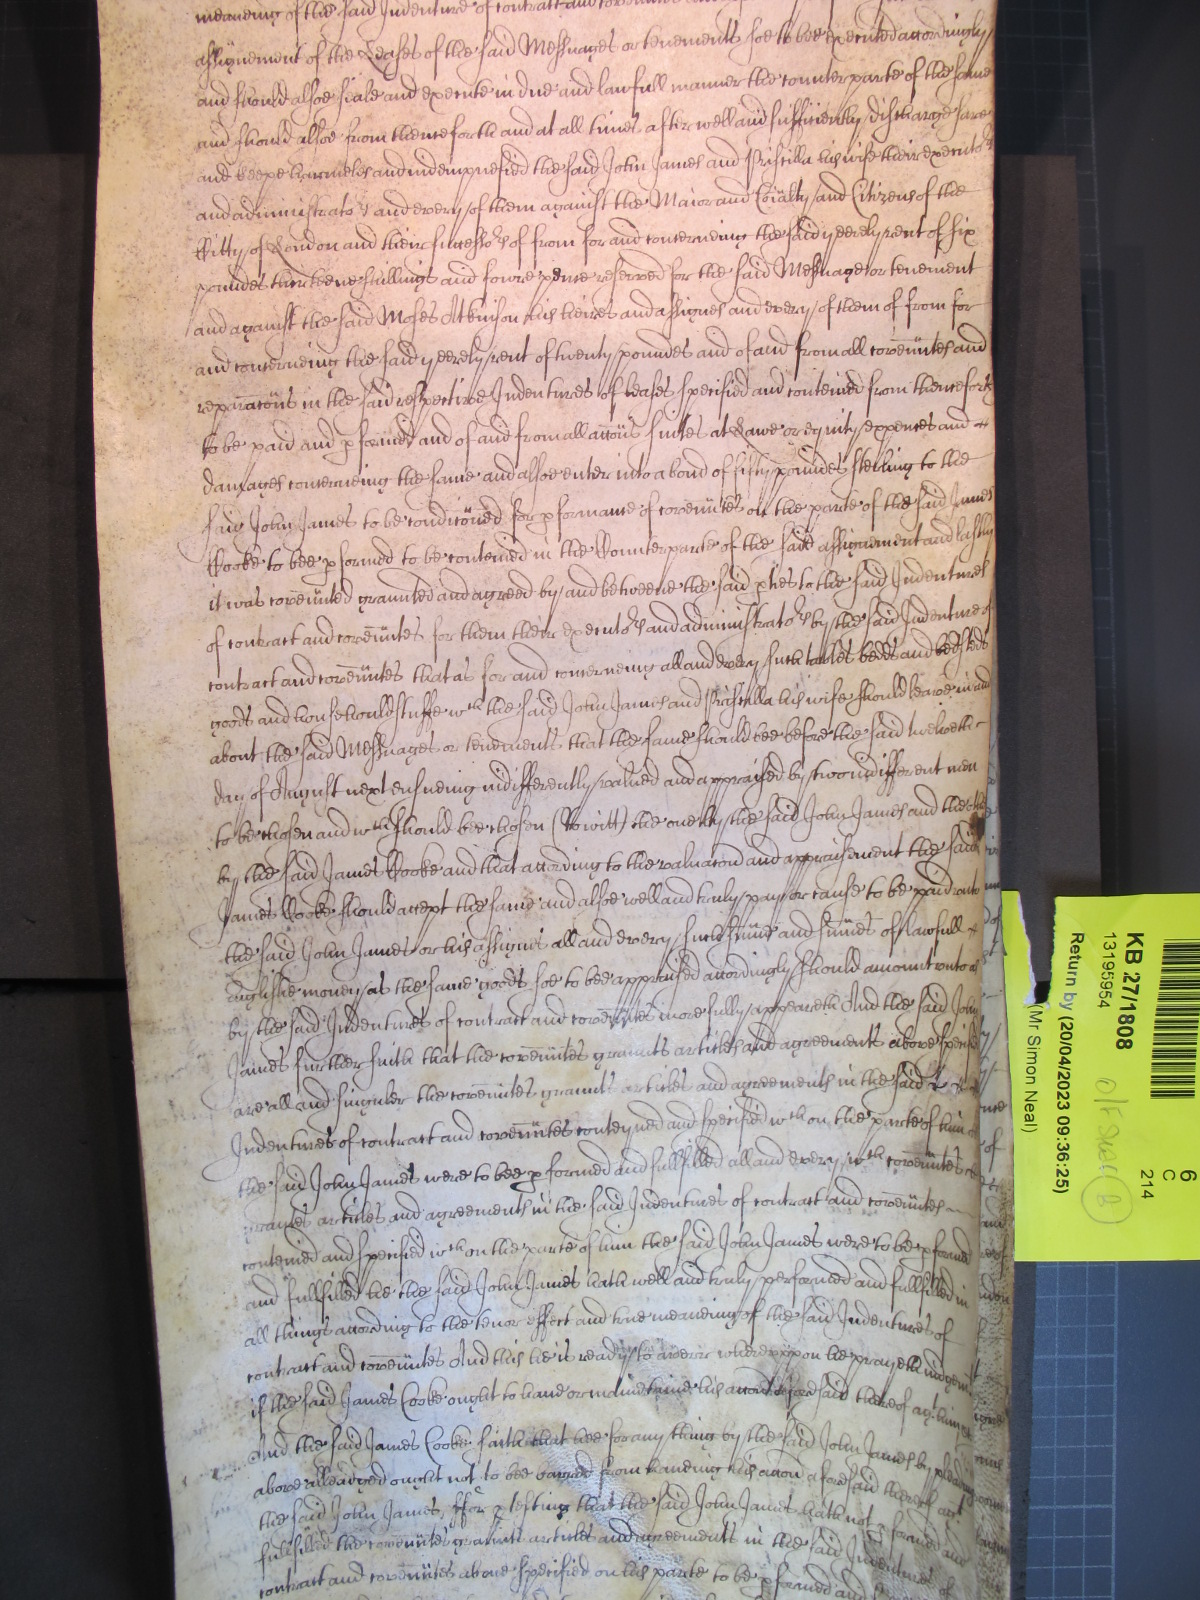 meaneing of the said Indenture of contract and covenantes
assignement of the Leases of the said Messuages or tenements soe to bee executed accordingly
and should alsoe seale and execute in due and lawfull manner the counterparte of the same
and should alsoe from thenceforth and at all times after well and sufficiently discharge save
and keepe harmeles and indempnefied the said John James and Priscilla his wife their executors
and administrators and every of them against the Maior and Coialty and Citizens of the
Citty of London and their successors of from for and concerneing the said yeerely rent of six
poundes thirteene shillings and foure pence reserved for the said Messuage or tenement
and against the said Moses Atkinson his heires and assignes and every of them of from for
and concerneing the said yeerely rent of twenty poundes and of and from all covenntes and
reparacons in the said respective Indentures of leases specified and conteined from thenceforth
to be paid and pformed and of and from all accons suites at Lawe or equity expences and
damages concerneing the same and alsoe enter into a bond of fifty poundes sterling to the
said John James to be condiconed for pformance of covenntes on the parte of the said James
Cooke to bee pformed to be conteined in the Counterparte of the said assignement and lastly
it was covennted graunted and agreed by and betweene the said pties to the said Indentures
of contract and covenntes for them their executors and administrators by the said Indentures of
contract and covenntes that as for and concerneing all and every such tables bedds and bedsteds
goods and househould stuffe wch the said John James and Priscilla his wife should leave in and
about the said Messuages or tenements that the same should bee before the said twelveth
day of August next ensueing indifferently valued and appraised by two indifferent men
to be chosen and wch should bee chosen (To witt) the one by the said John James and the other
by the said James Cooke and that according to the valuacon and appraisement the said
James Cooke should accept the same and alsoe well and truly pay or cause to be paid unto
the said John James or his assignes all and every such sume and sumes of lawfull
english money as the same goods soe to bee appraised accordingly should amount unto as
by the said Indentures of contract and covenntes more fully appeareth And the said John
James further saith that the covenntes graunts articles and agreements above specified
are all and singuler the covenntes graunts articles and agreements in the said
Indentures of contract and covenntes conteyned and specified wch on the parte of him
the said John James were to bee pformed and fullfilled all and every wch covenntes
graunts articles and agreements in the said Indentures of contract and covenntes
conteined and specified wch on the parte of him the said John James were to be pformed
and fullfilled he the said John James hath well and truly performed and fullfilled in
all things according to the tenor effect and true meaneing of the said Indentures of
contract and covenntes And this he is ready to averr whereuppon he prayeth judgemt
if the said James Cooke ought to have or mainetaine his accon aforesaid thereof agt him
And the said James Cooke saith that hee for any thing by the said John James by pleading
above alleadged ought not to bee barred from haveing his accon aforesaid thereof agt
the said John James ffor ptesting that the said John James hath not pformed and
fullfilled the covenntes graunts articles and agreements in the said Indentures of
contract and covenntes above specified on his parte to be pformed and
KB 27/1808
13195954
Return by (20/04/2023 09:36:25)
(Mr Simon Neal)
6
C
214